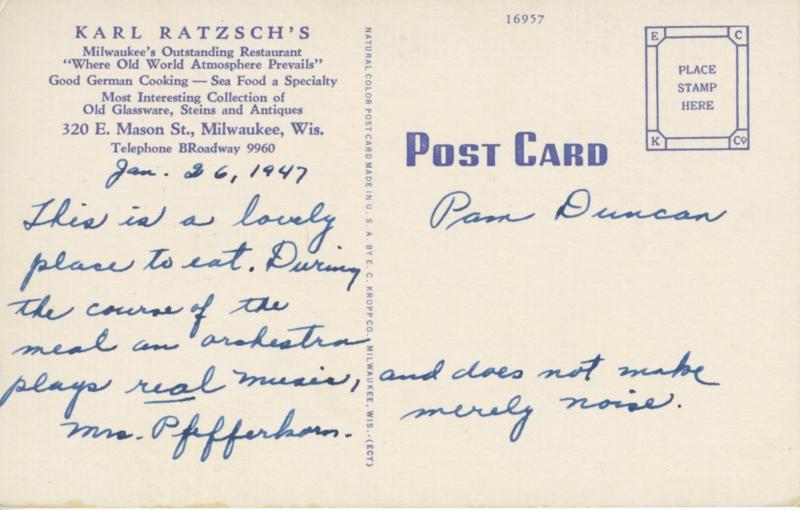 KARL RATZSCH'S
Milwaukee's Outstanding Restaurant
"Where Old World Atmosphere Prevails"
Good German Cooking — Sea Food a Specialty
Most Interesting Collection of
Old Glassware, Steins and Antiques
320 E. Mason St., Milwaukee, Wis.
Telephone BRoadway 9960
Jan. 26, 1947
This is a lovely
place to eat. During
the course of the
meal an orchestra
plays real music, and does not make
merely noise.
Mrs. Pfefferkorn.
NATURAL COLOR POST CARD MADE IN U. S. A. BY E. C. KROPP CO., MILWAUKEE, WIS.-(ECY)
16957
POST CARD
E C
PLACE
STAMP
HERE
K Co
Pam Duncan